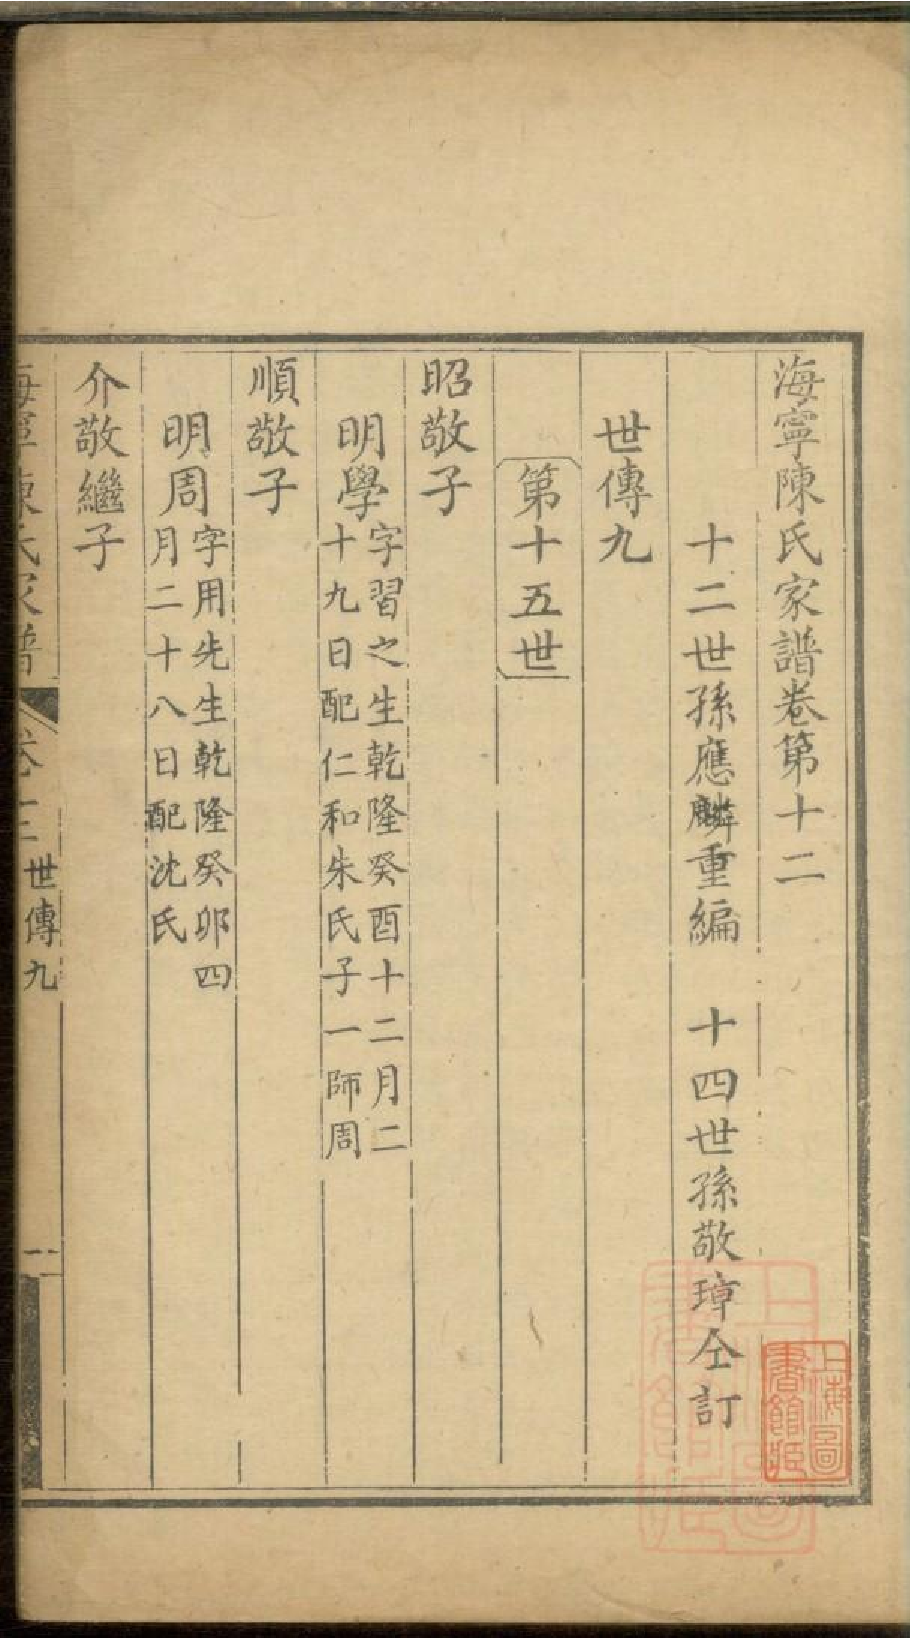 海寧陳氏家譜卷第十二
十二世孫應麟重編　十四世孫敬璋仝訂
世傳九
第十五世
昭敬子
明學字習之生乾隆癸酉十二月二
十九日配仁和朱氏子一師周
順敬子
明周字用先生乾隆癸卯四
月二十八日配沈氏
介敬繼子
海寧陳氏家譜
世傳九
一
上海圖書館藏